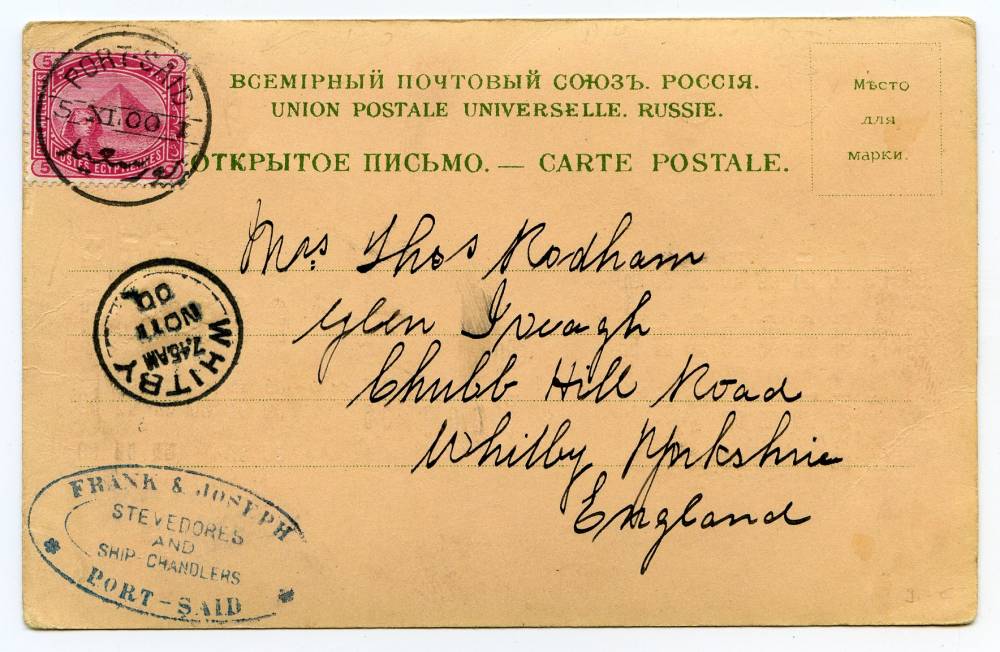 ВСЕМІРНЫЙ ПОЧТОВЫЙ СОЮЗЪ. РОССІЯ.
UNION POSTALE UNIVERSELLE. RUSSIE.
ОТКРЫТОЕ ПИСЬМО. — CARTE POSTALE.
Мѣсто
для
марки.
PORT-SAID
5 XI 00
POSTES EGYPTIENNES
Mrs Thos Rodham
Glen Iveagh
Chubb Hill Road
Whitby Yorkshire
England
WHITBY
7.45AM
NO 11
00
FRANK & JOSEPH
STEVEDORES
AND
SHIP-CHANDLERS
PORT-SAID